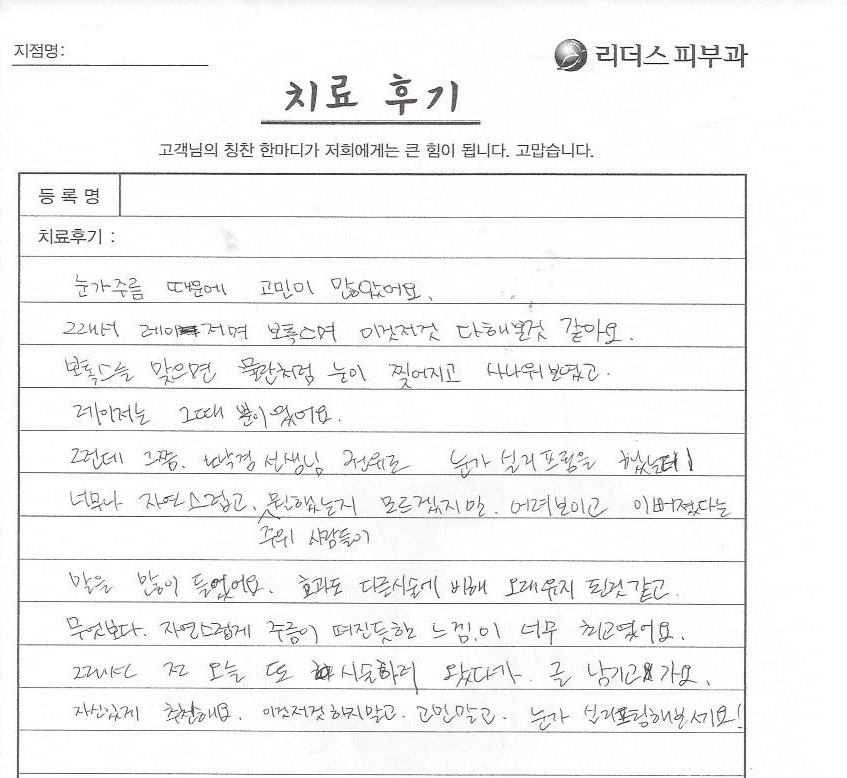 지점명:
리더스 피부과
치료 후기
고객님의 칭찬 한마디가 저희에게는 큰 힘이 됩니다. 고맙습니다.
등 록 명
치료후기 :
눈가주름 때문에 고민이 많았어요.
그래서 레이저며 보톡스며 이것저것 다해본것 같아요.
보톡스를 맞으면 눈이 찢어지고 사나워보였고.
레이저는 그때 뿐이었어요.
그런데 그쯤. 선생님 권유로 눈가 실리프팅을 했는데!
너무나 자연스럽고, 뭔했는지 모르겠지만. 어려보이고 이뻐졌다는
주위 사람들이
말을 많이 들었어요. 효과도 다른시술에 비해 오래유지 된것같고.
무엇보다. 자연스럽게 주름이 펴진듯한 느낌이 너무 최고였어요.
그래서 전 오늘 또 시술하러 왔다가. 글 남기고 가요.
자신있게 추천해요. 이것저것 하지말고. 고민말고. 눈가 실리프팅해보세요!